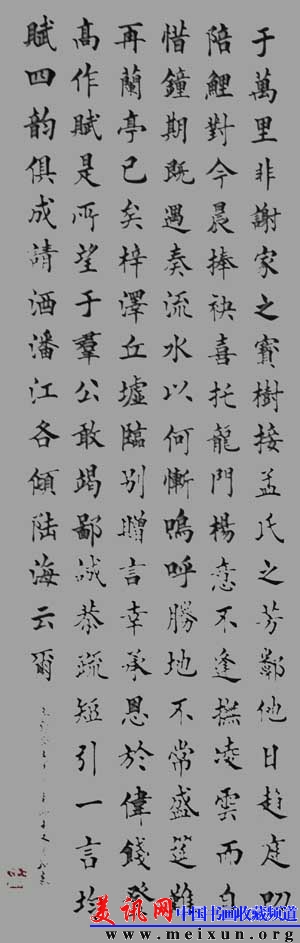 于萬里非謝家之寶樹接孟氏之芳鄰他日趋庭叨
陪鯉對今晨捧袂喜托龍門楊意不逢撫凌雲而自
惜鐘期既遇奏流水以何慚嗚呼勝地不常盛筵難
再蘭亭已矣梓澤丘墟臨别贈言幸承恩於偉餞登
高作賦是所望于羣公敢竭鄙誠恭疏短引一言均
賦四韵俱成請洒潘江各傾陆海云爾
美讯网 中国书画收藏频道
www.meixun.org